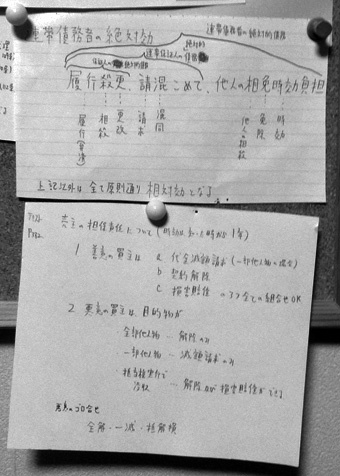 連帯債務者の絶対効
連帯債務者の絶対的債務
履行殺更、請混こめて、他人の相免時効負担
履行(弁済)
相殺
更改
請求
混同
他人の相殺
免除
時効
上記以外は全て原則通り相対効となる
売主の担保責任について(時効は知った時から1年)
1 善意の買主は
a 代金減額請求(一部他人物の場合)
b 契約解除
c 損害賠償 の3つ全ての組合せOK
2 悪意の買主は、目的物が
全部他人物 - 解除のみ
一部他人物 - 減額請求のみ
抵当権実行で
- 解除及び損害賠償ができる
悪意のゴロ合せ
全解・一減・抵解損